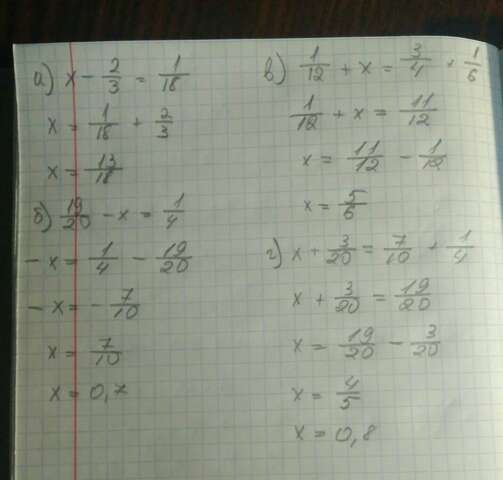 а) x - 2/3 = 1/18
x = 1/18 + 2/3
x = 13/18
б) 19/20 - x = 1/4
- x = 1/4 - 19/20
- x = - 7/10
x = 7/10
x = 0,7
в) 1/12 + x = 3/4 + 1/6
1/12 + x = 11/12
x = 11/12 - 1/12
x = 5/6
г) x + 3/20 = 7/10 + 1/4
x + 3/20 = 19/20
x = 19/20 - 3/20
x = 4/5
x = 0,8